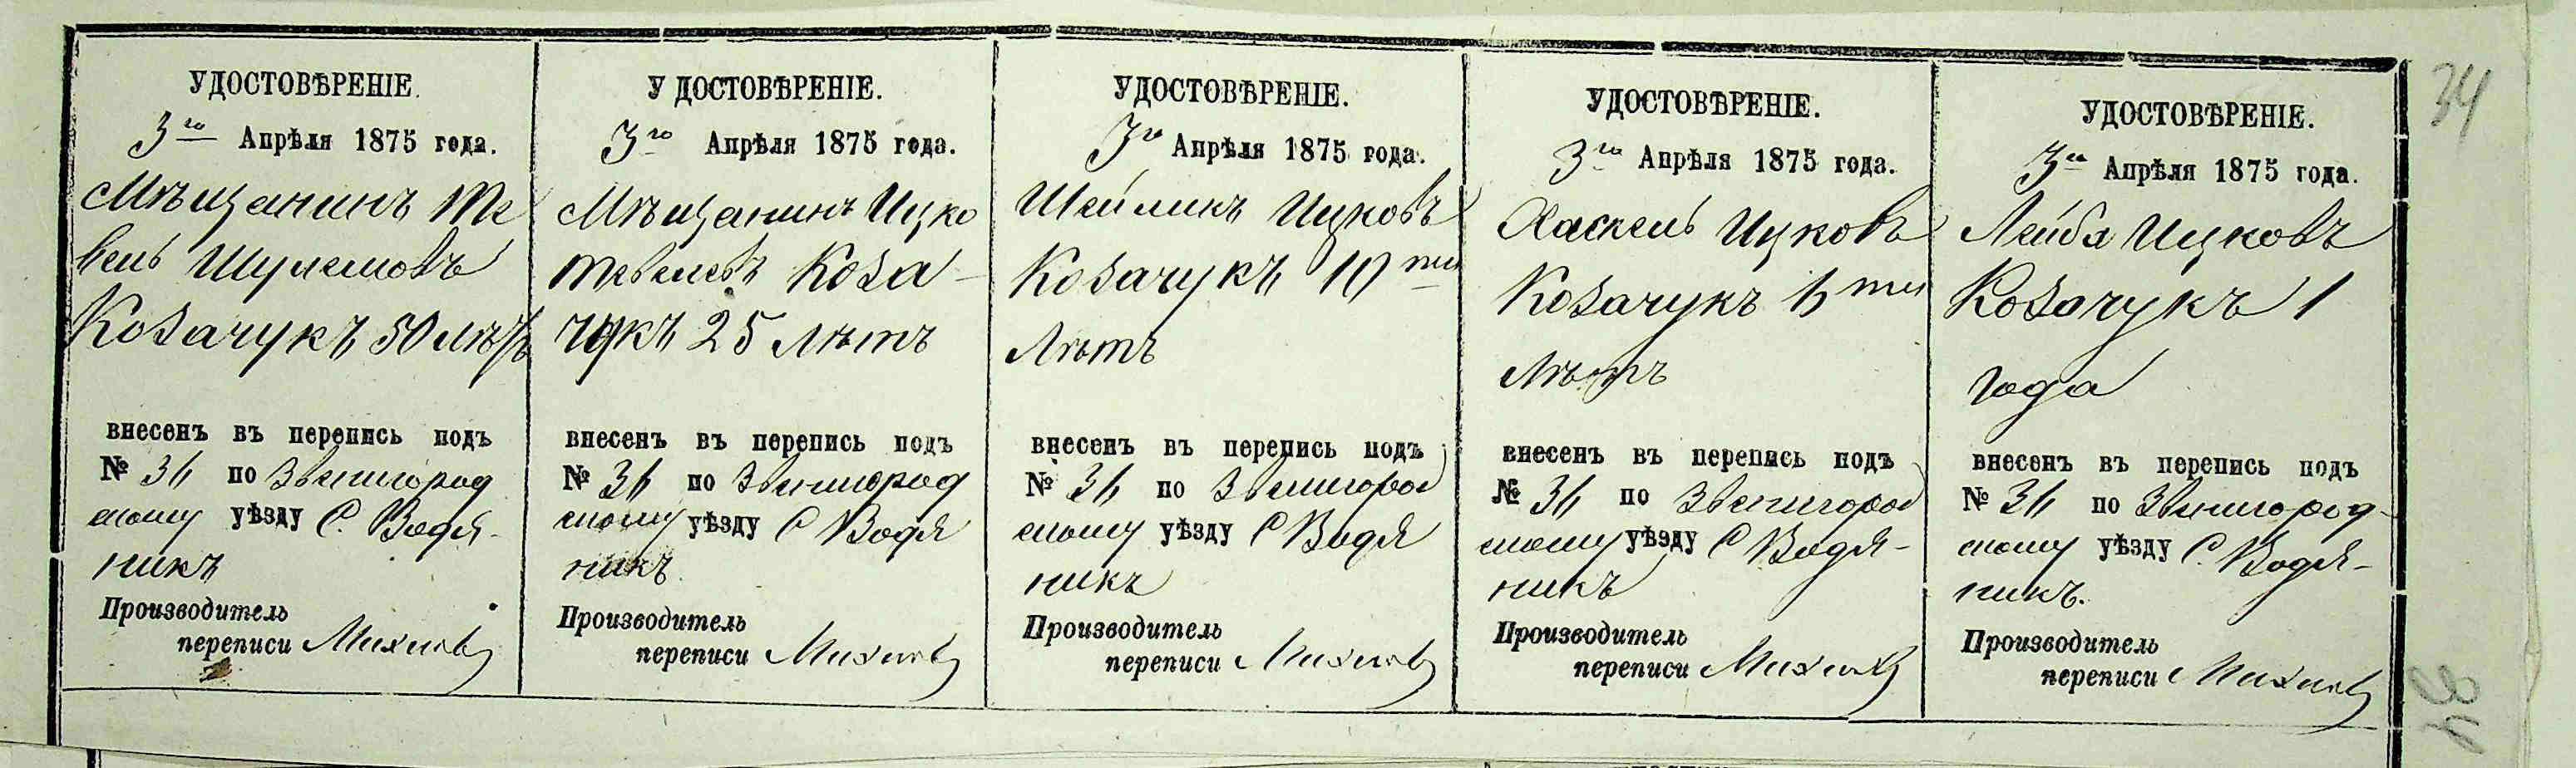 УДОСТОВѢРЕНІЕ.
3го Апрѣля 1875 года.
Мѣщанинъ Те
вель Шулемовъ
Козачукъ 50 лѣтъ
внесенъ въ перепись подъ
№ 36 по Звенигород
скому уѣзду С. Водя-
никъ
Производитель
переписи
УДОСТОВѢРЕНІЕ.
3го Апрѣля 1875 года.
Мѣщанинъ Ицко
Тевелевъ Коза-
чукъ 25 лѣтъ
внесенъ въ перепись подъ
№ 36 по Звенигород
скому уѣзду С Водя
никъ.
Производитель
переписи
УДОСТОВѢРЕНІЕ.
3го Апрѣля 1875 года.
Шейликъ Ицковъ
Козачукъ ти
Лѣтъ
внесенъ въ перепись подъ
№ 36 по Звенигород
скому уѣзду С Водя
никъ
Производитель
переписи
УДОСТОВѢРЕНІЕ.
3го Апрѣля 1875 года.
Хаскель Ицковъ
Козачукъ ти
Лѣтъ
внесенъ въ перепись подъ
№ 36 по Звенигород
скому уѣзду С Водя-
никъ
Производитель
переписи
УДОСТОВѢРЕНІЕ.
3го Апрѣля 1875 года.
Лейба Ицковъ
Козачукъ 1
года
внесенъ въ перепись подъ
№ 36 по Звенигород-
скому уѣзду С. Водя-
никъ.
Производитель
переписи
34